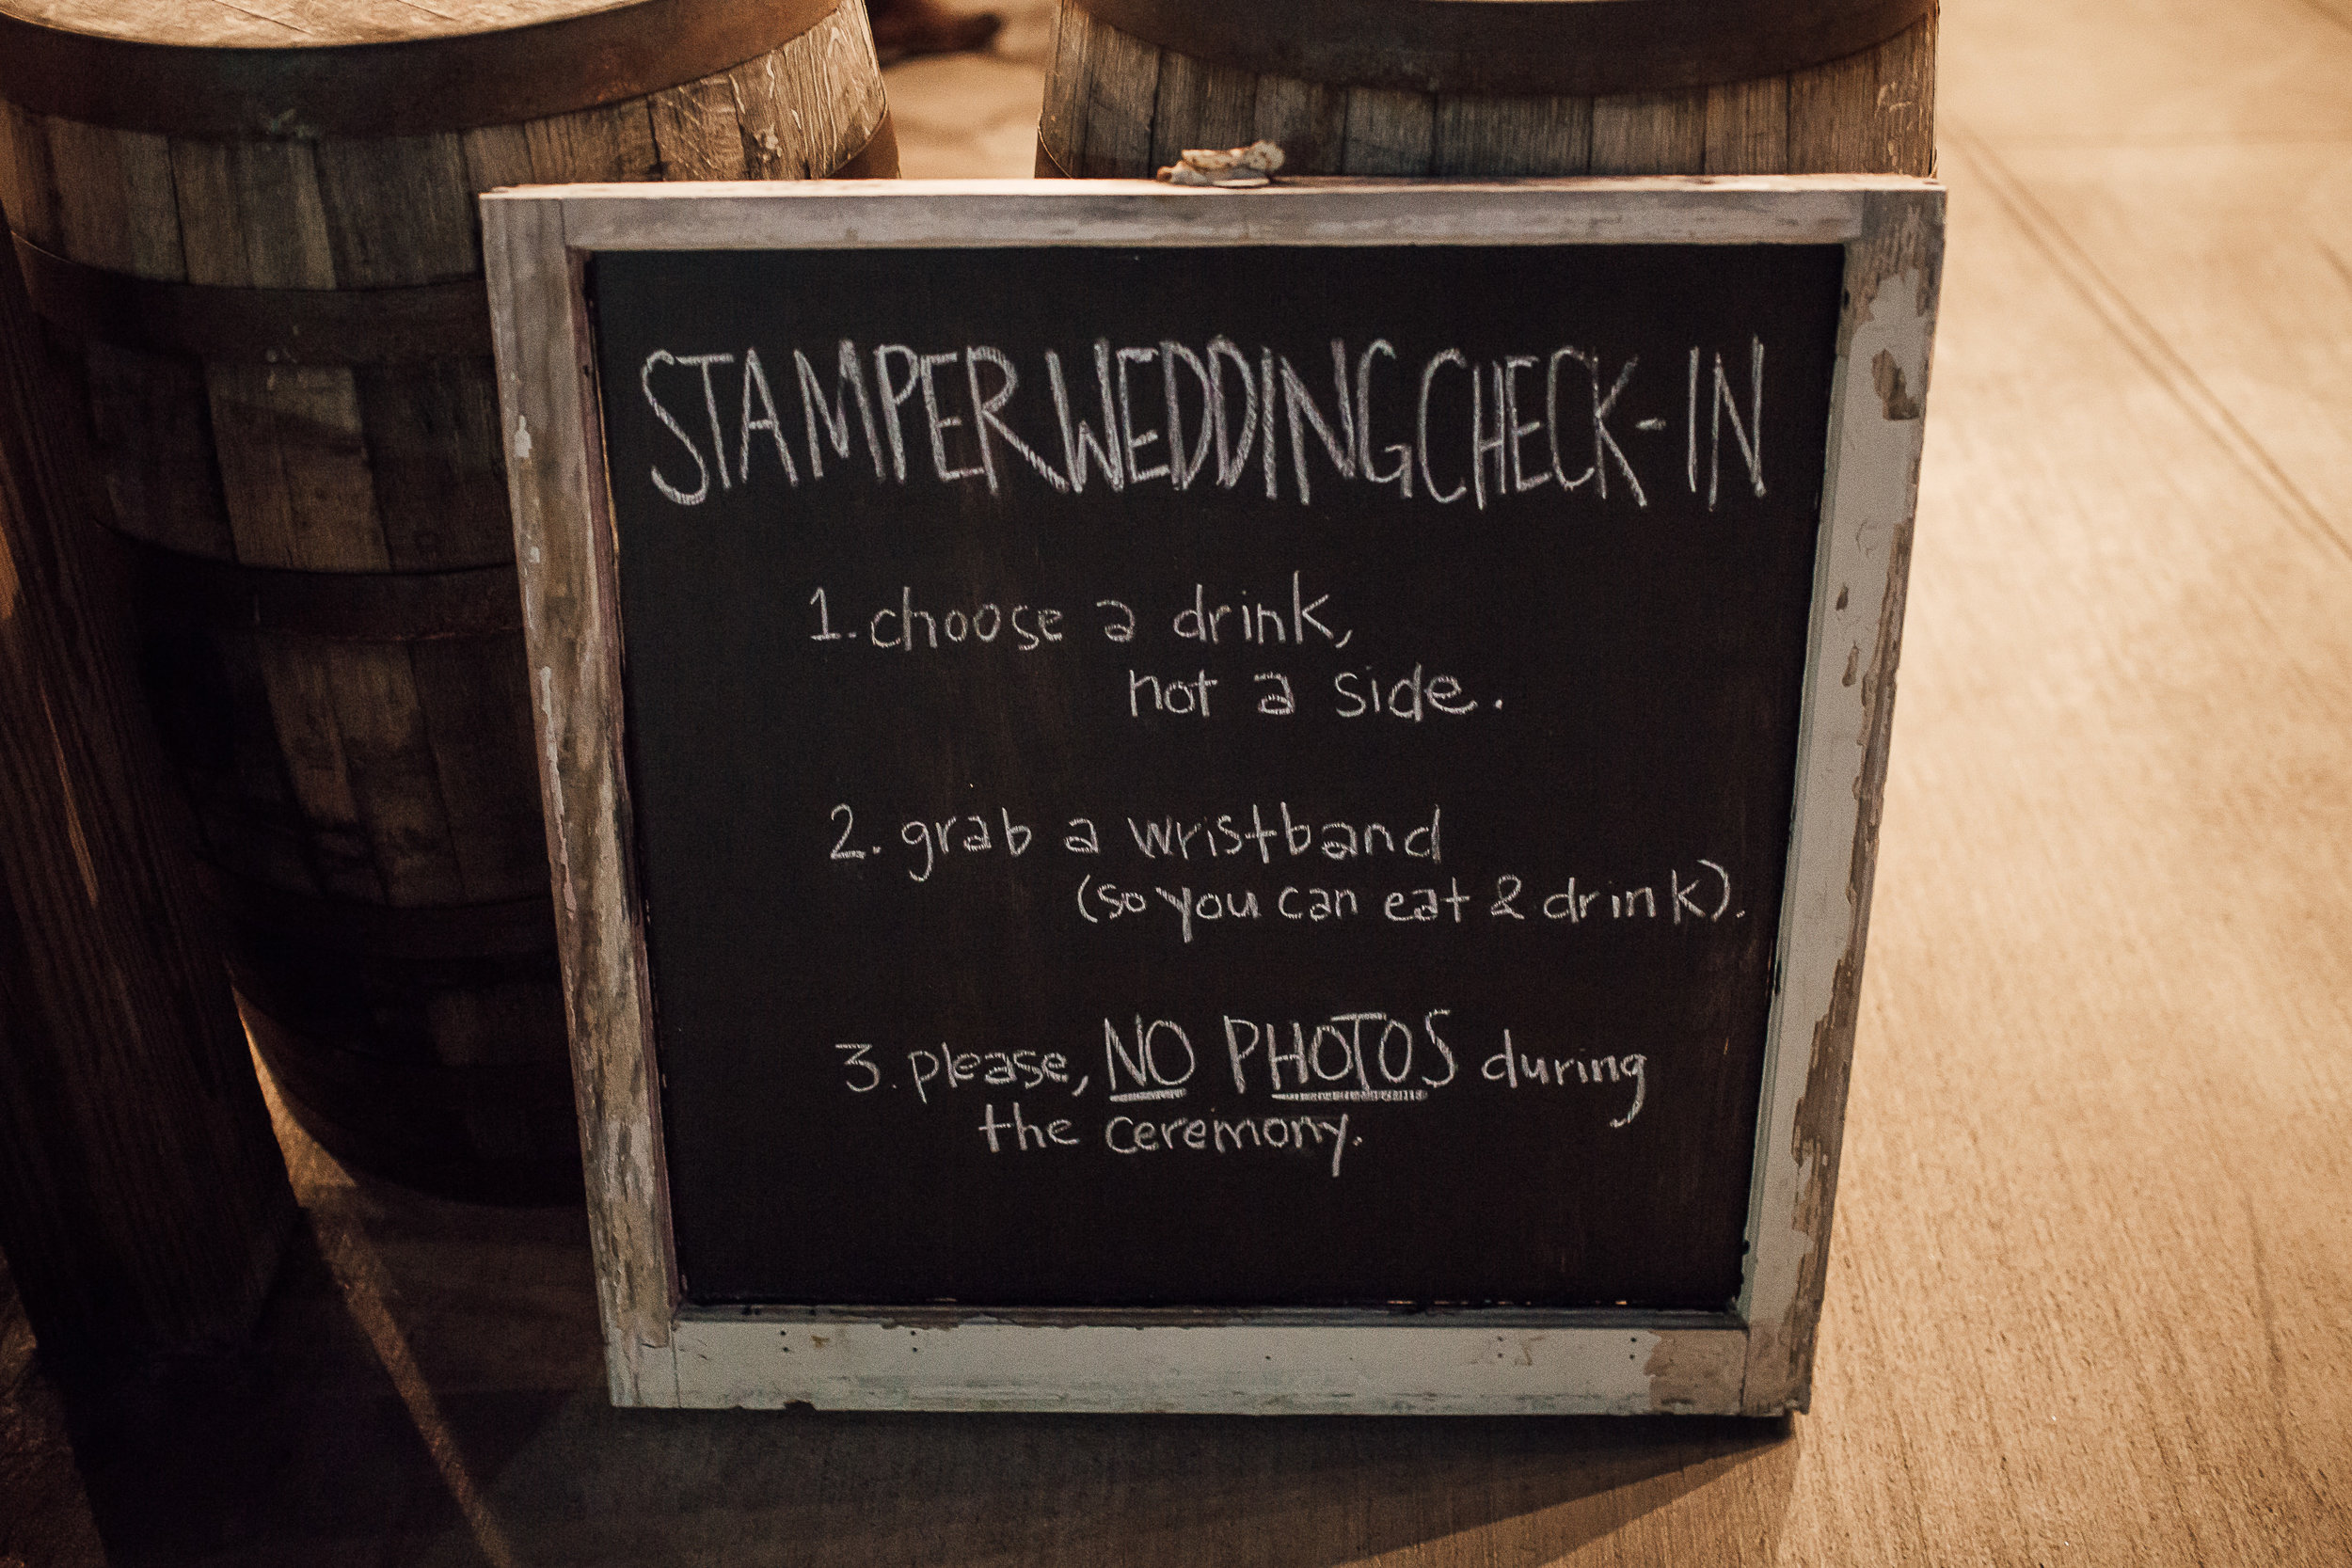 STAMPER WEDDING CHECK-IN
1. choose a drink,
not a side.
2. grab a wristband
(so you can eat & drink).
3. please, NO PHOTOS during
the ceremony.